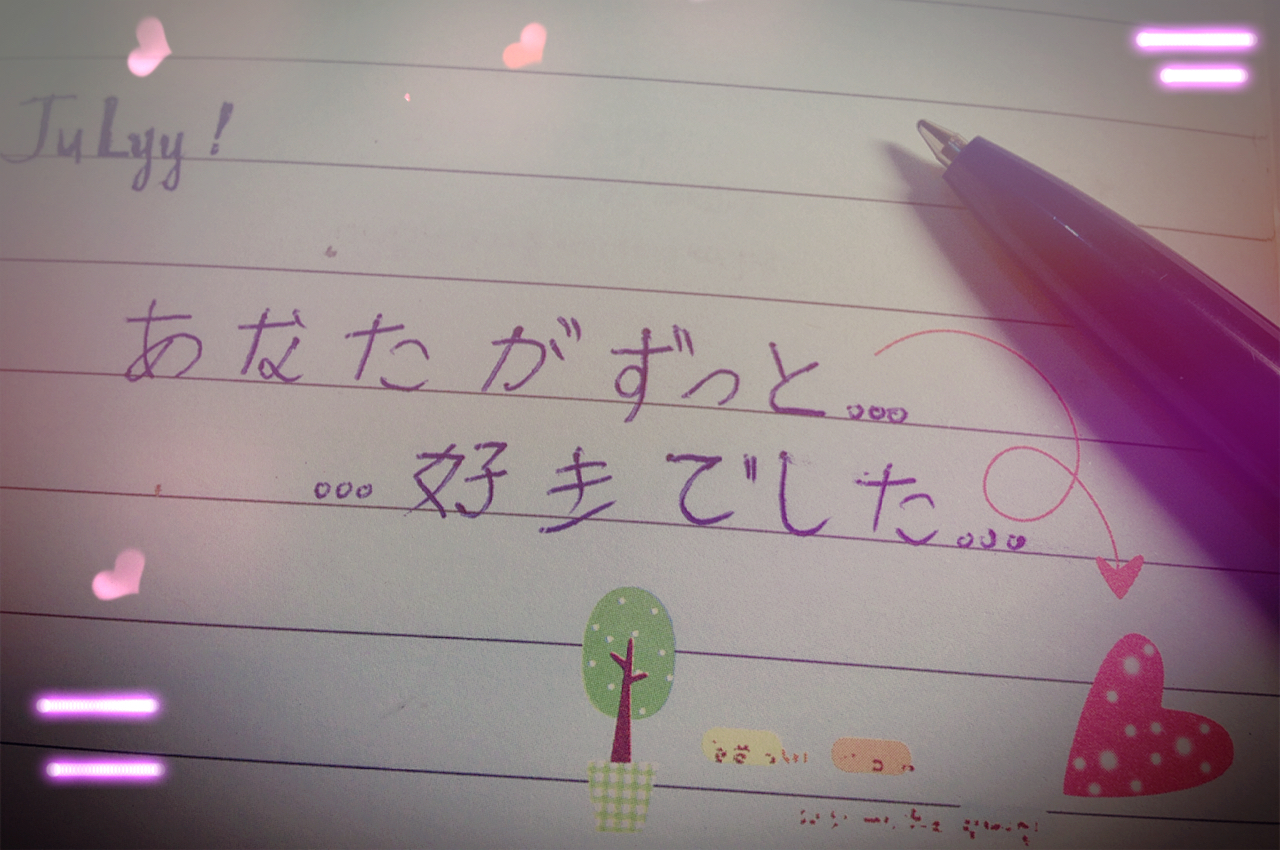 JuLyy!
あなたがずっと...
...好きでした...